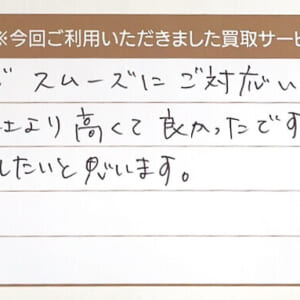 ※今回ご利用いただきました買取サービ
スムーズにご対応い
より高くて良かったです
したいと思います。